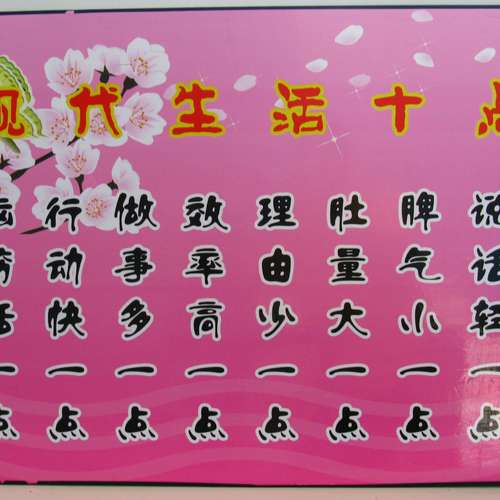 现代生活十点
说语轻一点
脾气小一点
肚量大一点
理由少一点
效率高一点
做事多一点
行动快一点
活一点